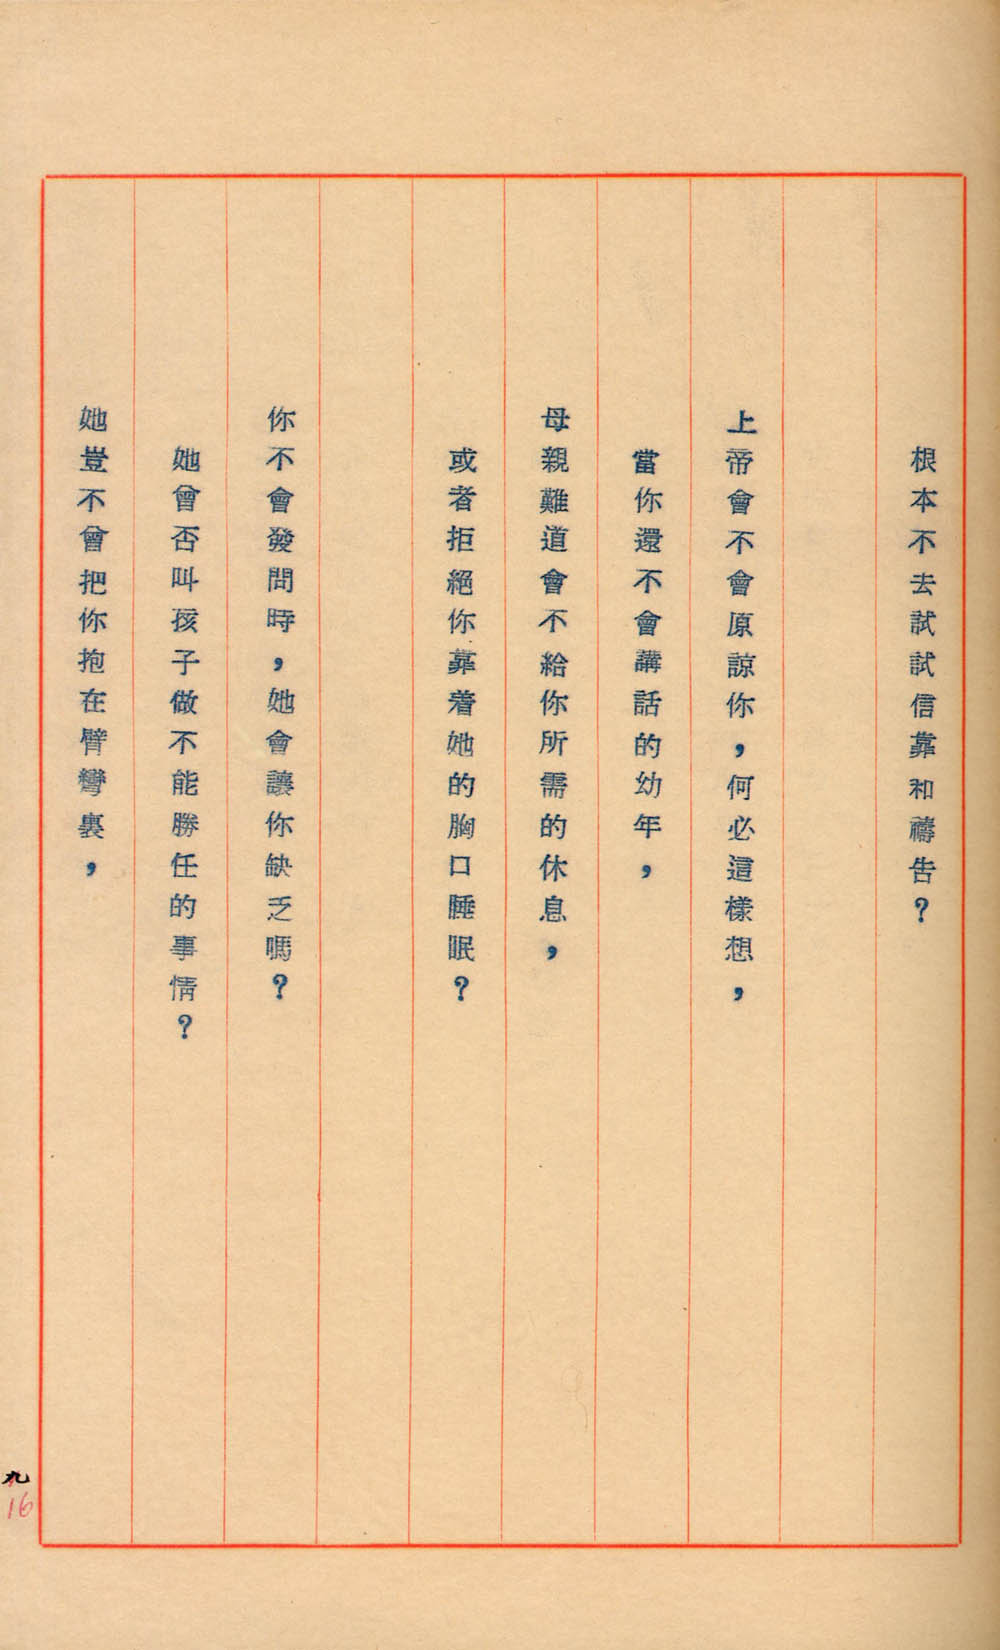 根本不去試試信靠和禱告？
上帝會不會原諒你，何必這樣想，
當你還不會講話的幼年，
母親難道會不給你所需的休息，
或者拒絕你靠着她的胸口睡眠？
你不會發問時，她會讓你缺乏嗎？
她曾否叫孩子做不能勝任的事情？
她豈不曾把你抱在臂彎裏，
九
16